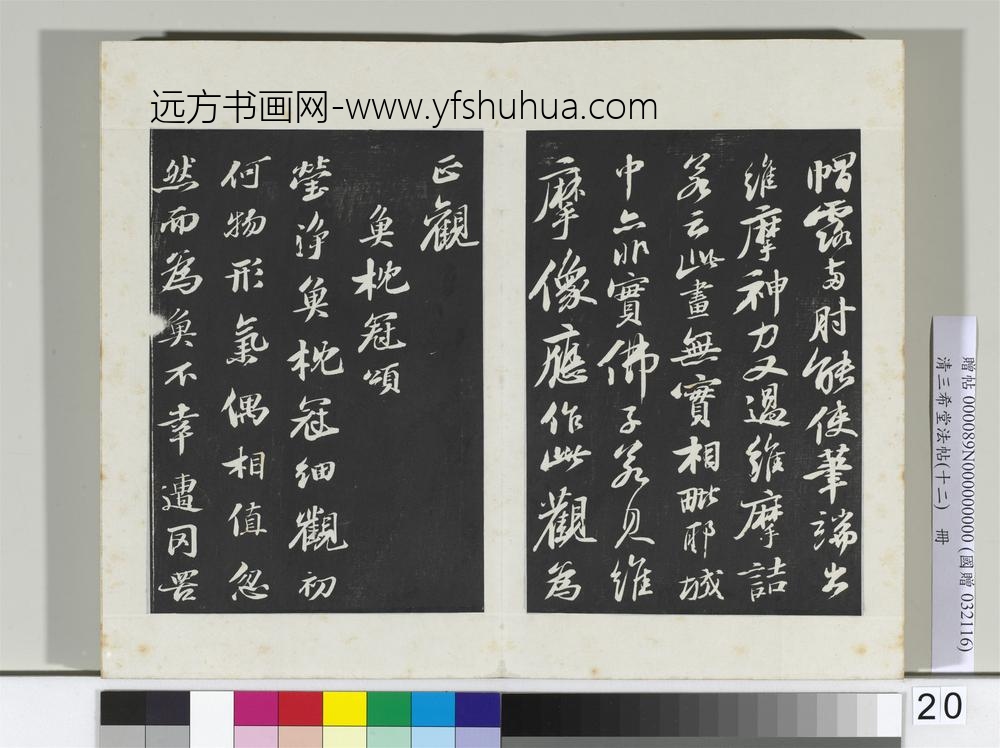 远方书画网-www.yfshuhua.com
帽露两肘能使筆端出
維摩神力又過維摩詰
若云此畫無實相毗耶城
中亦非實佛子若見維
摩像應作此觀為
正觀
魚枕冠頌
瑩淨魚枕冠細觀初
何物形氣偶相值忽
然而為魚不幸遭网罟
贈帖 0000089N000000000 (國贈 032116)
清三希堂法帖(十二) 冊
20